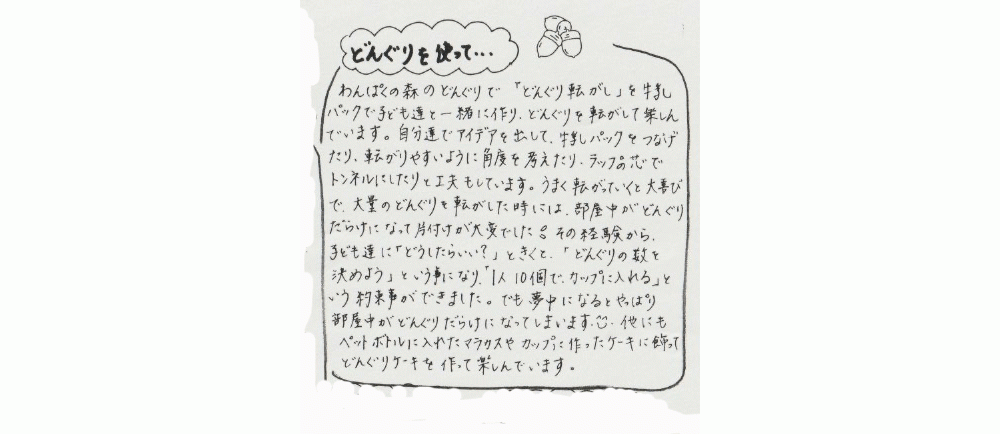 どんぐりを使って・・・
わんぱくの森のどんぐりで「どんぐり転がし」を牛乳
パックで子ども達と一緒に作り、どんぐりを転がして楽しん
でいます。自分達でアイデアを出して、牛乳パックをつなげ
たり、転がりやすいように角度を考えたり、ラップの芯で
トンネルにしたりと工夫もしています。うまく転がっていくと大喜び
で、大量のどんぐりを転がした時には、部屋中がどんぐり
だらけになって片付けが大変でした。その経験から、
子ども達に「どうしたらいい?」ときくと、「どんぐりの数を
決めよう」という事になり、「1人10個で、カップに入れる」と
いう約束事ができました。でも夢中になるとやっぱり
部屋中がどんぐりだらけになってしまいます。他にも
ペットボトルに入れたマラカスやカップに作ったケーキに飾って
どんぐりケーキを作って楽しんでいます。